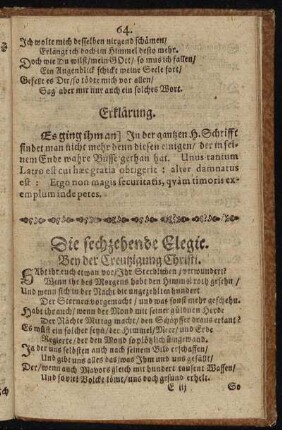 64.
Ich wolte mich desselben nirgend schämen/
Erlangt ich doch im Himmel desto mehr.
Doch wie Du wilst/ mein GOtt/ so mus ich fallen/
Ein Augenblick schickt meine Seele fort/
Gefellt es Dir/ so tödte mich vor allen/
Sag aber mir nur auch ein solches Wort.
Erklärung.
Es ging ihm an] In der gantzen H. Schrifft
findet man nicht mehr denn diesen einigen/ der in sei-
nem Ende wahre Busse gethan hat. Unus tantum
Latro est cui hæc gratia obtigerit: alter damnatus
est: Ergo non magis securitatis, qvàm timoris ex-
emplum inde petes.
Die sechzehende Elegie.
Bey der Creutzigung Christi.
HAbt ihr euch etwan vor/ Ihr Sterblichen/ verwundert?
Wenn ihr des Morgens habt den Himmel roth gesehn/
Und wenn sich in der Nacht die ungezehlten hundert
Der Sternen vorgemacht/ und was sonst mehr geschehn.
Habt ihr auch/ wenn der Mond mit seiner güldnen Heerde
Der Nächte Mittag macht/ den Schöpffer draus erkant?
Es müst ein solcher seyn/ der Himmel/ Meer/ und Erde
Regierte/ der den Mond so plötzlich umgewand.
Ja der uns selbsten auch nach seinem Bild erschaffen/
Und gibt uns alles das/ was Ihm und uns gefällt/
Der/ wenn auch Mavors gleich mit hundert tausent Waffen/
Und so viel Volcke kömt/ uns doch gesund erhelt.
E iij So